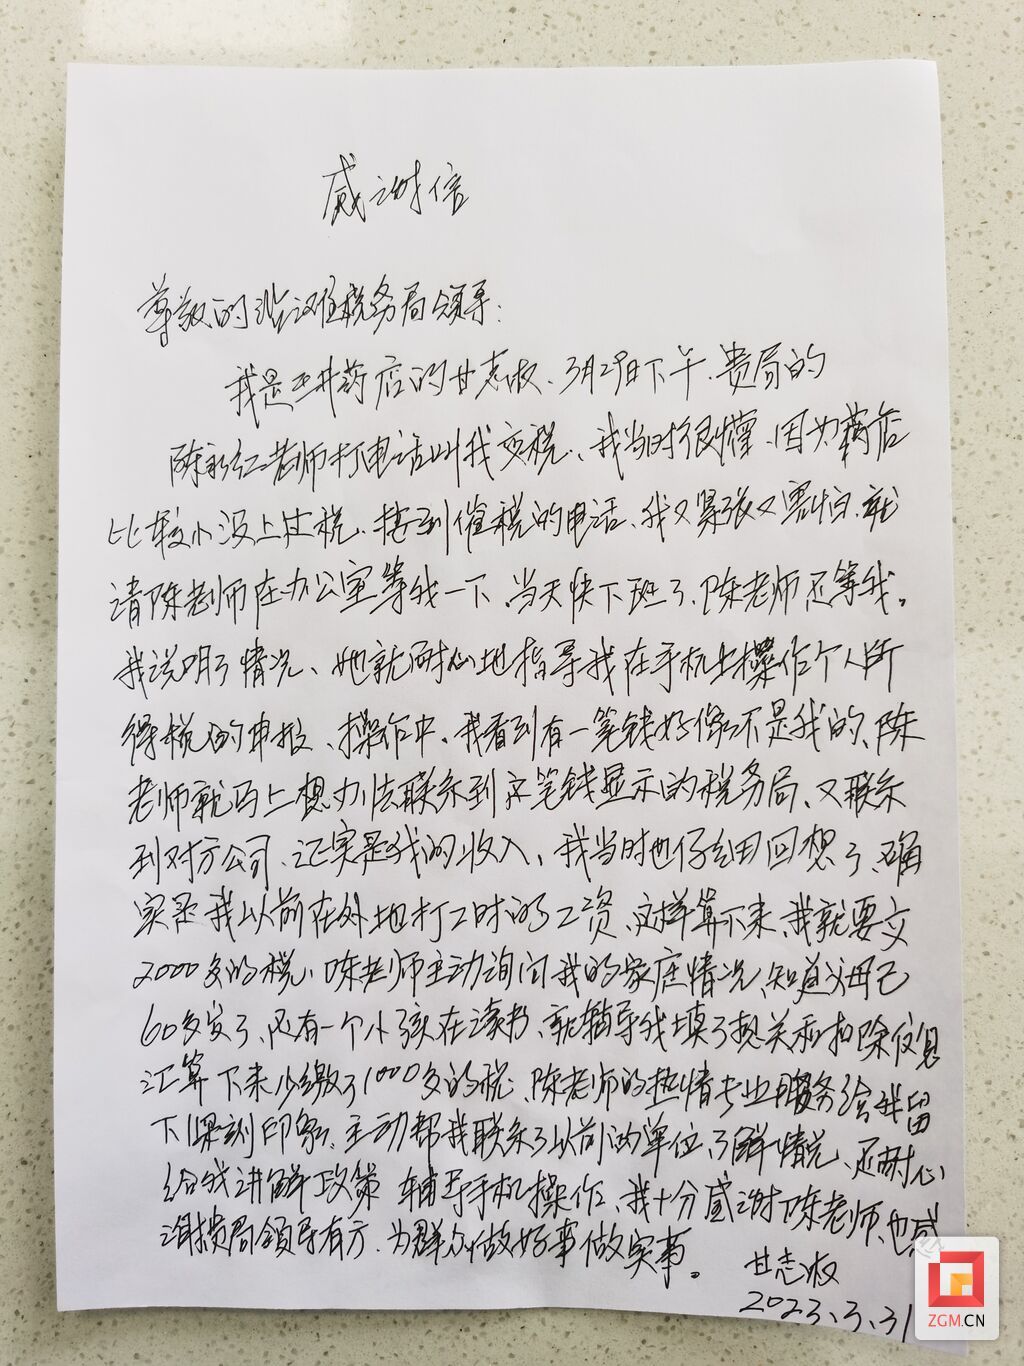 感谢信
尊敬的沿滩区税务局领导:
我是王井药店的甘志淑、3月29日下午、贵局的
陈永红老师打电话叫我交税、我当时很懵、因为药店
比较小没上过税、接到催税的电话、我又紧张又害怕、就
请陈老师在办公室等我一下、当天快下班了、陈老师还等我。
我说明了情况、她就耐心地指导我在手机上操作个人所
得税的申报、操作中、我看到有一笔钱好像不是我的、陈
老师就马上想办法联系到这笔钱显示的税务局、又联系
到对方公司、证实是我的收入、我当时也仔细回想了、确
实是我以前在外地打工时的工资、这样算下来、我就要交
2000多的税、陈老师主动询问我的家庭情况、知道父母已
60多岁了、还有一个小孩在读书、就辅导我填了相关和扣除信息
汇算下来少缴了1000多的税、陈老师的热情专业服务给我留
下深刻印象、主动帮我联系了以前的单位、了解情况、还耐心
给我讲解政策 辅导手机操作、我十分感谢陈老师、也感
谢贵局领导有方、为群众做好事做实事。
甘志淑
2023.3.31
ZGM.CN